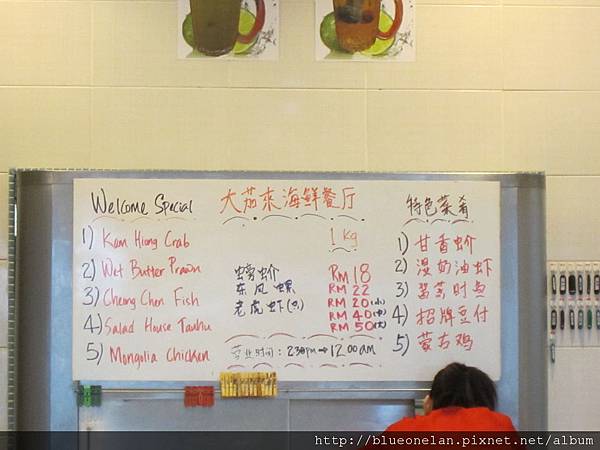 Welcome Special
1) Kam Hiong Crab
2) Wet Butter Prawn
3) Cheong Chen Fish
4) Salad House Tauhu
5) Mongolia Chicken
大茄來海鲜餐厅
1 kg
螃蚧 RM 18
东风螺 RM 22
老虎虾 RM 20 (小)
RM 40 (中)
RM 50 (大)
营业时间: 2:30pm → 12:00am
特色菜肴
1) 甘香蚧
2) 湿奶油虾
3) 酱蒸
4) 招牌豆付
5) 蒙古鸡
http://blueonelan.pixnet.net/album